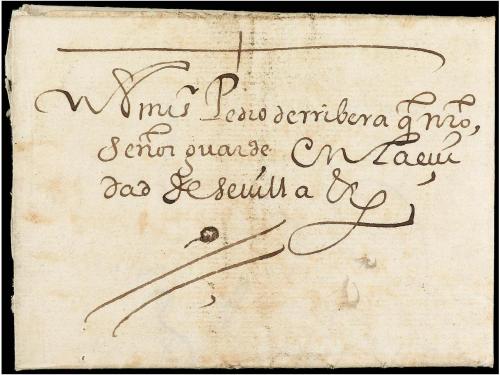 Pedro derribera q̃ nr̃o
señor guarde en la ciu
dad de sevilla &